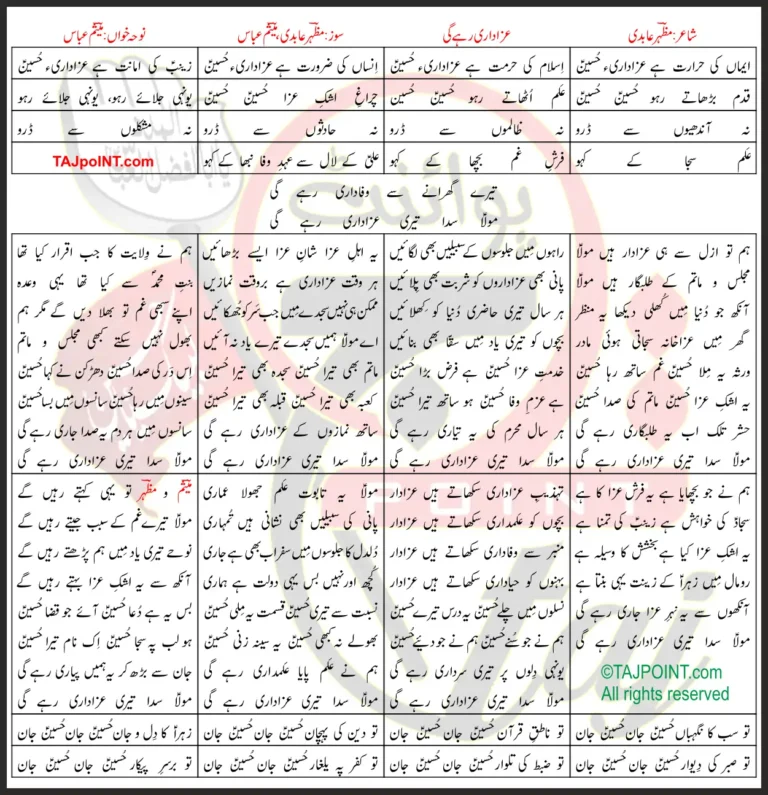 شاعر: مظہر عابدی
عزاداری رہے گی
سوز: مظہر عابدی، میثم عباس
نوحہ خواں: میثم عباس
ایماں کی حرارت ہے عزاداریء حُسینؑ
اِسلام کی حرمت ہے عزاداریء حُسینؑ
اِنساں کی ضرورت ہے عزاداریء حُسینؑ
زینبؑ کی امانت ہے عزاداریء حُسینؑ
قدم بڑھاتے رہو حُسینؑ حُسینؑ
عَلم اُٹھاتے رہو حُسینؑ حُسینؑ
چراغِ اشکِ عزا حُسینؑ حُسینؑ
یونہی جلائے رہو، یونہی جلائے رہو
نہ آندھیوں سے ڈرو
نہ ظالموں سے ڈرو
نہ حادثوں سے ڈرو
نہ مشکلوں سے ڈرو
عَلم سجا کے کہو
فرشِ غم بچھا کے کہو
علیؑ کے لال سے عہدِ وفا نبھا کے کہو
TAJpoiNT.com
تیرے گھرانے سے وفاداری رہے گی
مولاؑ سدا تیری عزاداری رہے گی
ہم تو ازل سے ہی عزادار ہیں مولاؑ
مجلس و ماتم کے طلبگار ہیں مولاؑ
آنکھ جو دُنیا میں کُھلی دیکھا یہ منظر
گھر میں عزاخانہ سجاتی ہوئی مادر
ورثہ یہ مِلا حُسینؑ غم ساتھ رہا حُسینؑ
یہ اشکِ عزا حُسینؑ ماتم کی صدا حُسینؑ
حشر تلک اب یہ طلبگاری رہے گی
مولاؑ سدا تیری عزاداری رہے گی
راہوں میں جلوسوں کے سبیلیں بھی لگائیں
پانی بھی عزاداروں کو شربت بھی پلائیں
ہر سال تیری حاضری دُنیا کو کِھلائیں
بچوں کو تیری یاد میں سقّا بھی بنائیں
خدمتِ عزا حُسینؑ ہے فرض بڑا حُسینؑ
ہے عزمِ وفا حُسینؑ ہو ساتھ تیرا حُسینؑ
ہر سال محرم کی یہ تیاری رہے گی
مولاؑ سدا تیری عزاداری رہے گی
یہ اہلِ عزا شانِ عزا ایسے بڑھائیں
ہر وقت عزاداری ہے بروقت نمازیں
ممکن ہی نہیں سجدے میں جب سَر کو جُھکائیں
اے مولاؑ ہمیں سجدے تیرے یاد نہ آئیں
ماتم بھی تیرا حُسینؑ سجدہ بھی تیرا حُسینؑ
کعبہ بھی تیرا حُسینؑ قبلہ بھی تیرا حُسینؑ
ساتھ نمازوں کے عزاداری رہے گی
مولاؑ سدا تیری عزاداری رہے گی
ہم نے ولایت کا جب اقرار کیا تھا
بنتِ محمدؐ سے کیا تھا یہی وعدہ
اپنے سبھی غم تو بھلا دیں گے مگر ہم
بھول نہیں سکتے کبھی مجلس و ماتم
اِس دَر کی صدا حُسینؑ دھڑکن نے کہا حُسینؑ
سینوں میں رہا حُسینؑ سانسوں میں بسا حُسینؑ
سانسوں میں ہر دم یہ صدا جاری رہے گی
مولاؑ سدا تیری عزاداری رہے گی
ہم نے جو بچھایا ہے یہ فرش عزا کا ہے
سجادؑ کی خواہش ہے زینبؑ کی تمنا ہے
یہ اشکِ عزا کیا ہے بخشش کا وسیلہ ہے
رومال میں زہراؑ کے زینت یہی بنتا ہے
آنکھوں سے یہ نہرِ عزا جاری رہے گی
مولاؑ سدا تیری عزاداری رہے گی
©TAJPOINT.com
All rights reserved
تہذیبِ عزاداری سکھاتے ہیں عزادار
بچوں کو عَلمداری سکھاتے ہیں عزادار
منبر سے وفاداری سکھاتے ہیں عزادار
بہنوں کو حیاداری سکھاتے ہیں عزادار
نسلوں میں چلے حُسینؑ یہ درس تیرے حُسینؑ
ہم نے جو سُنے حُسینؑ ہم نے جو دیئے حُسینؑ
یونہی دِلوں پر تیری سرداری رہے گی
مولاؑ سدا تیری عزاداری رہے گی
مولاؑ یہ تابوت عَلم جھولا عماری
پانی کی سبیلیں بھی نشانی ہیں تُمہاری
دُلدل کا جلوسوں میں سفر اب بھی ہے جاری
کُچھ اور نہیں بس یہی دولت ہے ہماری
نسبت سے تیری حُسینؑ قسمت یہ مِلی حُسینؑ
بھولے نہ کبھی حُسینؑ یہ سینہ زنی حُسینؑ
ہم نے عَلم پایا عَلمداری رہے گی
مولاؑ سدا تیری عزاداری رہے گی
میثم و مظہر تو یہی کہتے رہیں گے
مولاؑ تیرے غم کے سبب جیتے رہیں گے
نوحے تیری یاد میں ہم پڑھتے رہیں گے
آنکھ سے یہ اشکِ عزا بہتے رہیں گے
بس یہ ہے دُعا حُسینؑ آئے جو قضا حُسینؑ
ہو لب پہ سجا حُسینؑ اِک نام تیرا حُسینؑ
جان سے بڑھ کر یہ ہمیں پیاری رہے گی
مولاؑ سدا تیری عزاداری رہے گی
تو سب کا نگہباں حُسینؑ جان حُسینؑ جان
تو ناطقِ قرآن حُسینؑ جان حُسینؑ جان
تو دین کی پہچان حُسینؑ جان حُسینؑ جان
زہراؑ کا دِل و جان حُسینؑ جان حُسینؑ جان
تو صبر کی دِیوار حُسینؑ جان حُسینؑ جان
تو ضبط کی تلوار حُسینؑ جان حُسینؑ جان
تو کفر پہ یلغار حُسینؑ جان حُسینؑ جان
تو برسرِ پیکار حُسینؑ جان حُسینؑ جان